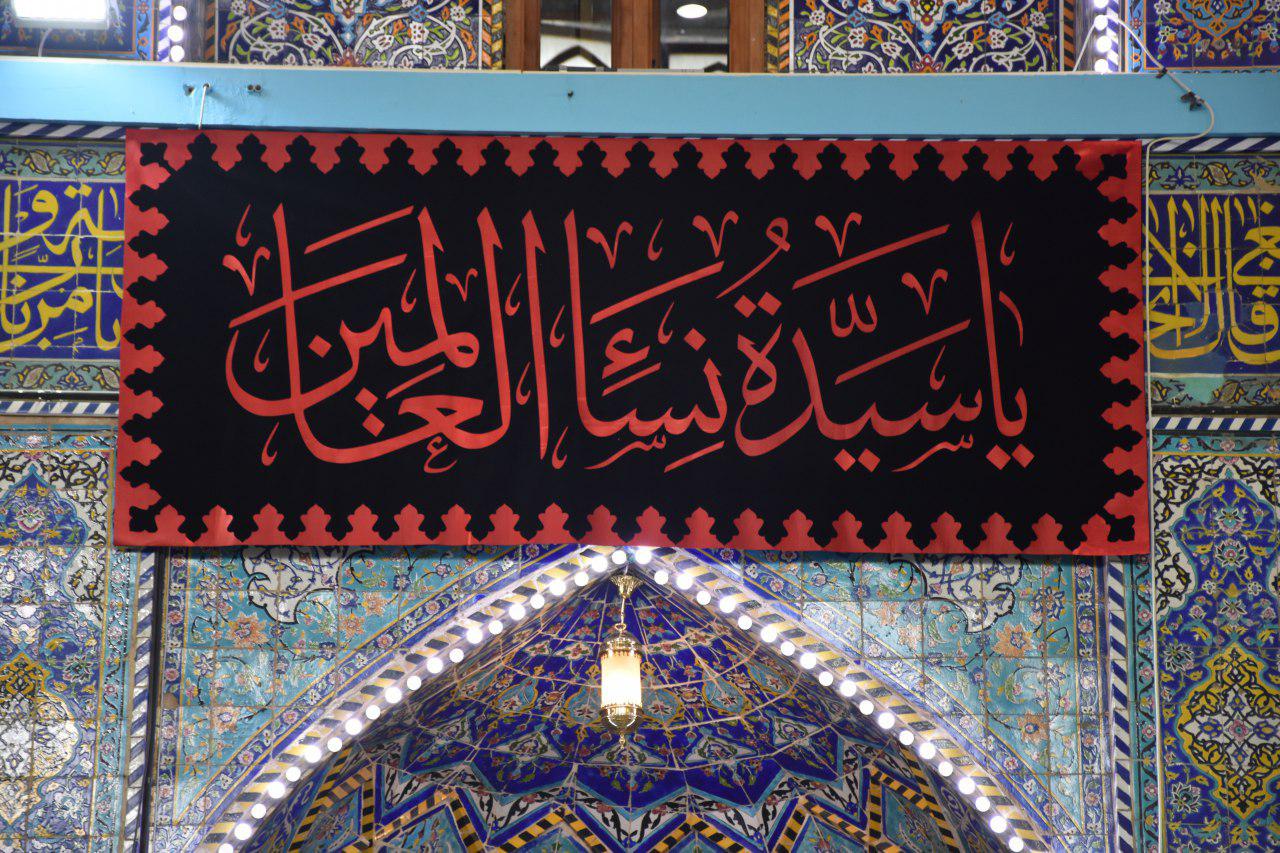 يا سيّدة نساء العالمين